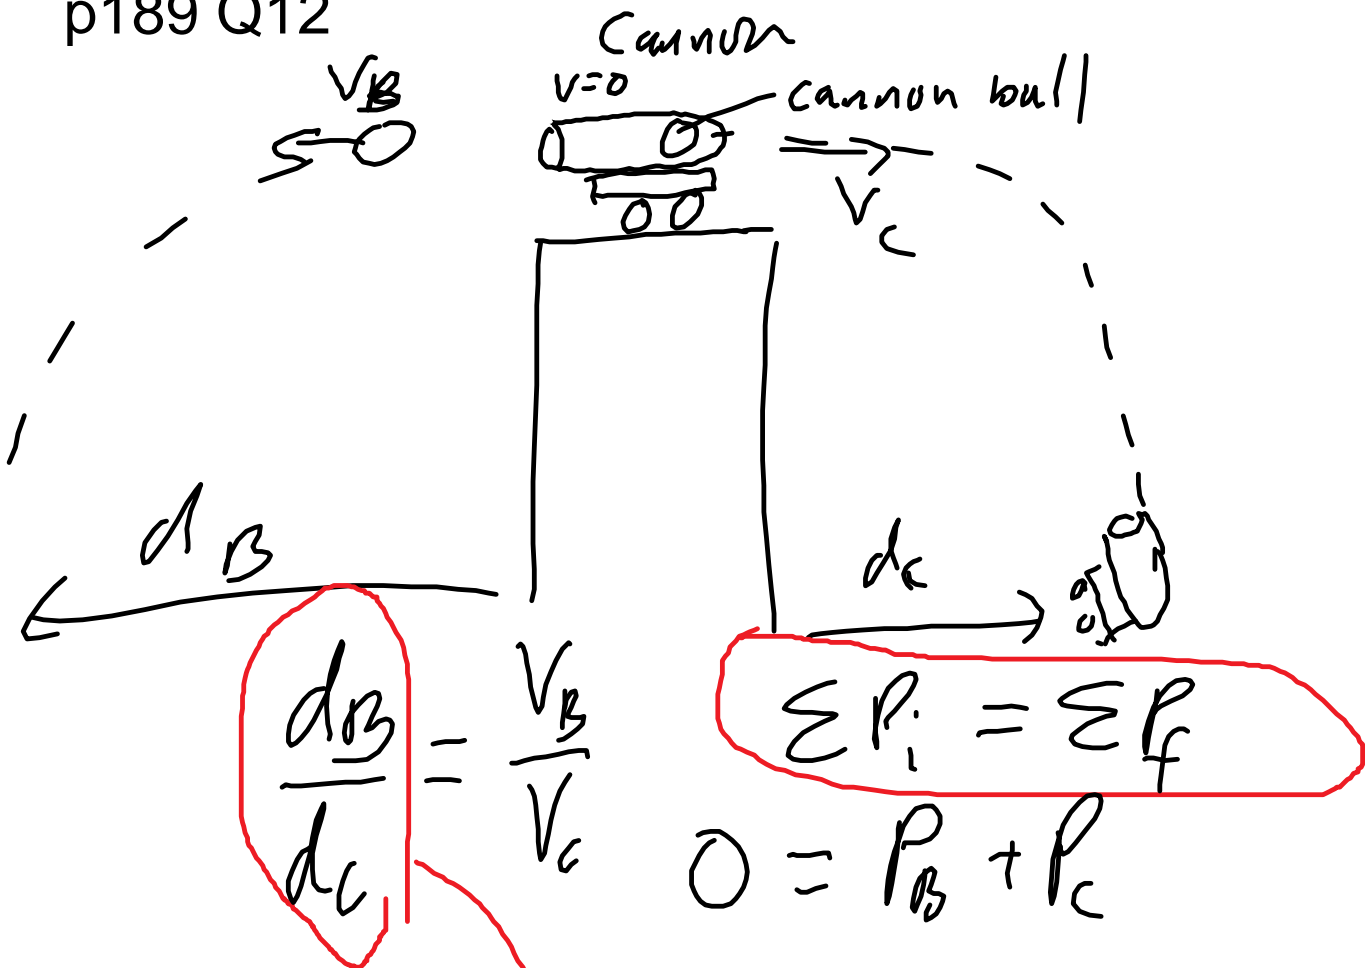 p189 Q12
Cannon
V=0
VB
cannon ball
Vc
dB
dc
dB/dc = VB/Vc
ΣPi = ΣPf
0 = PB + Pc